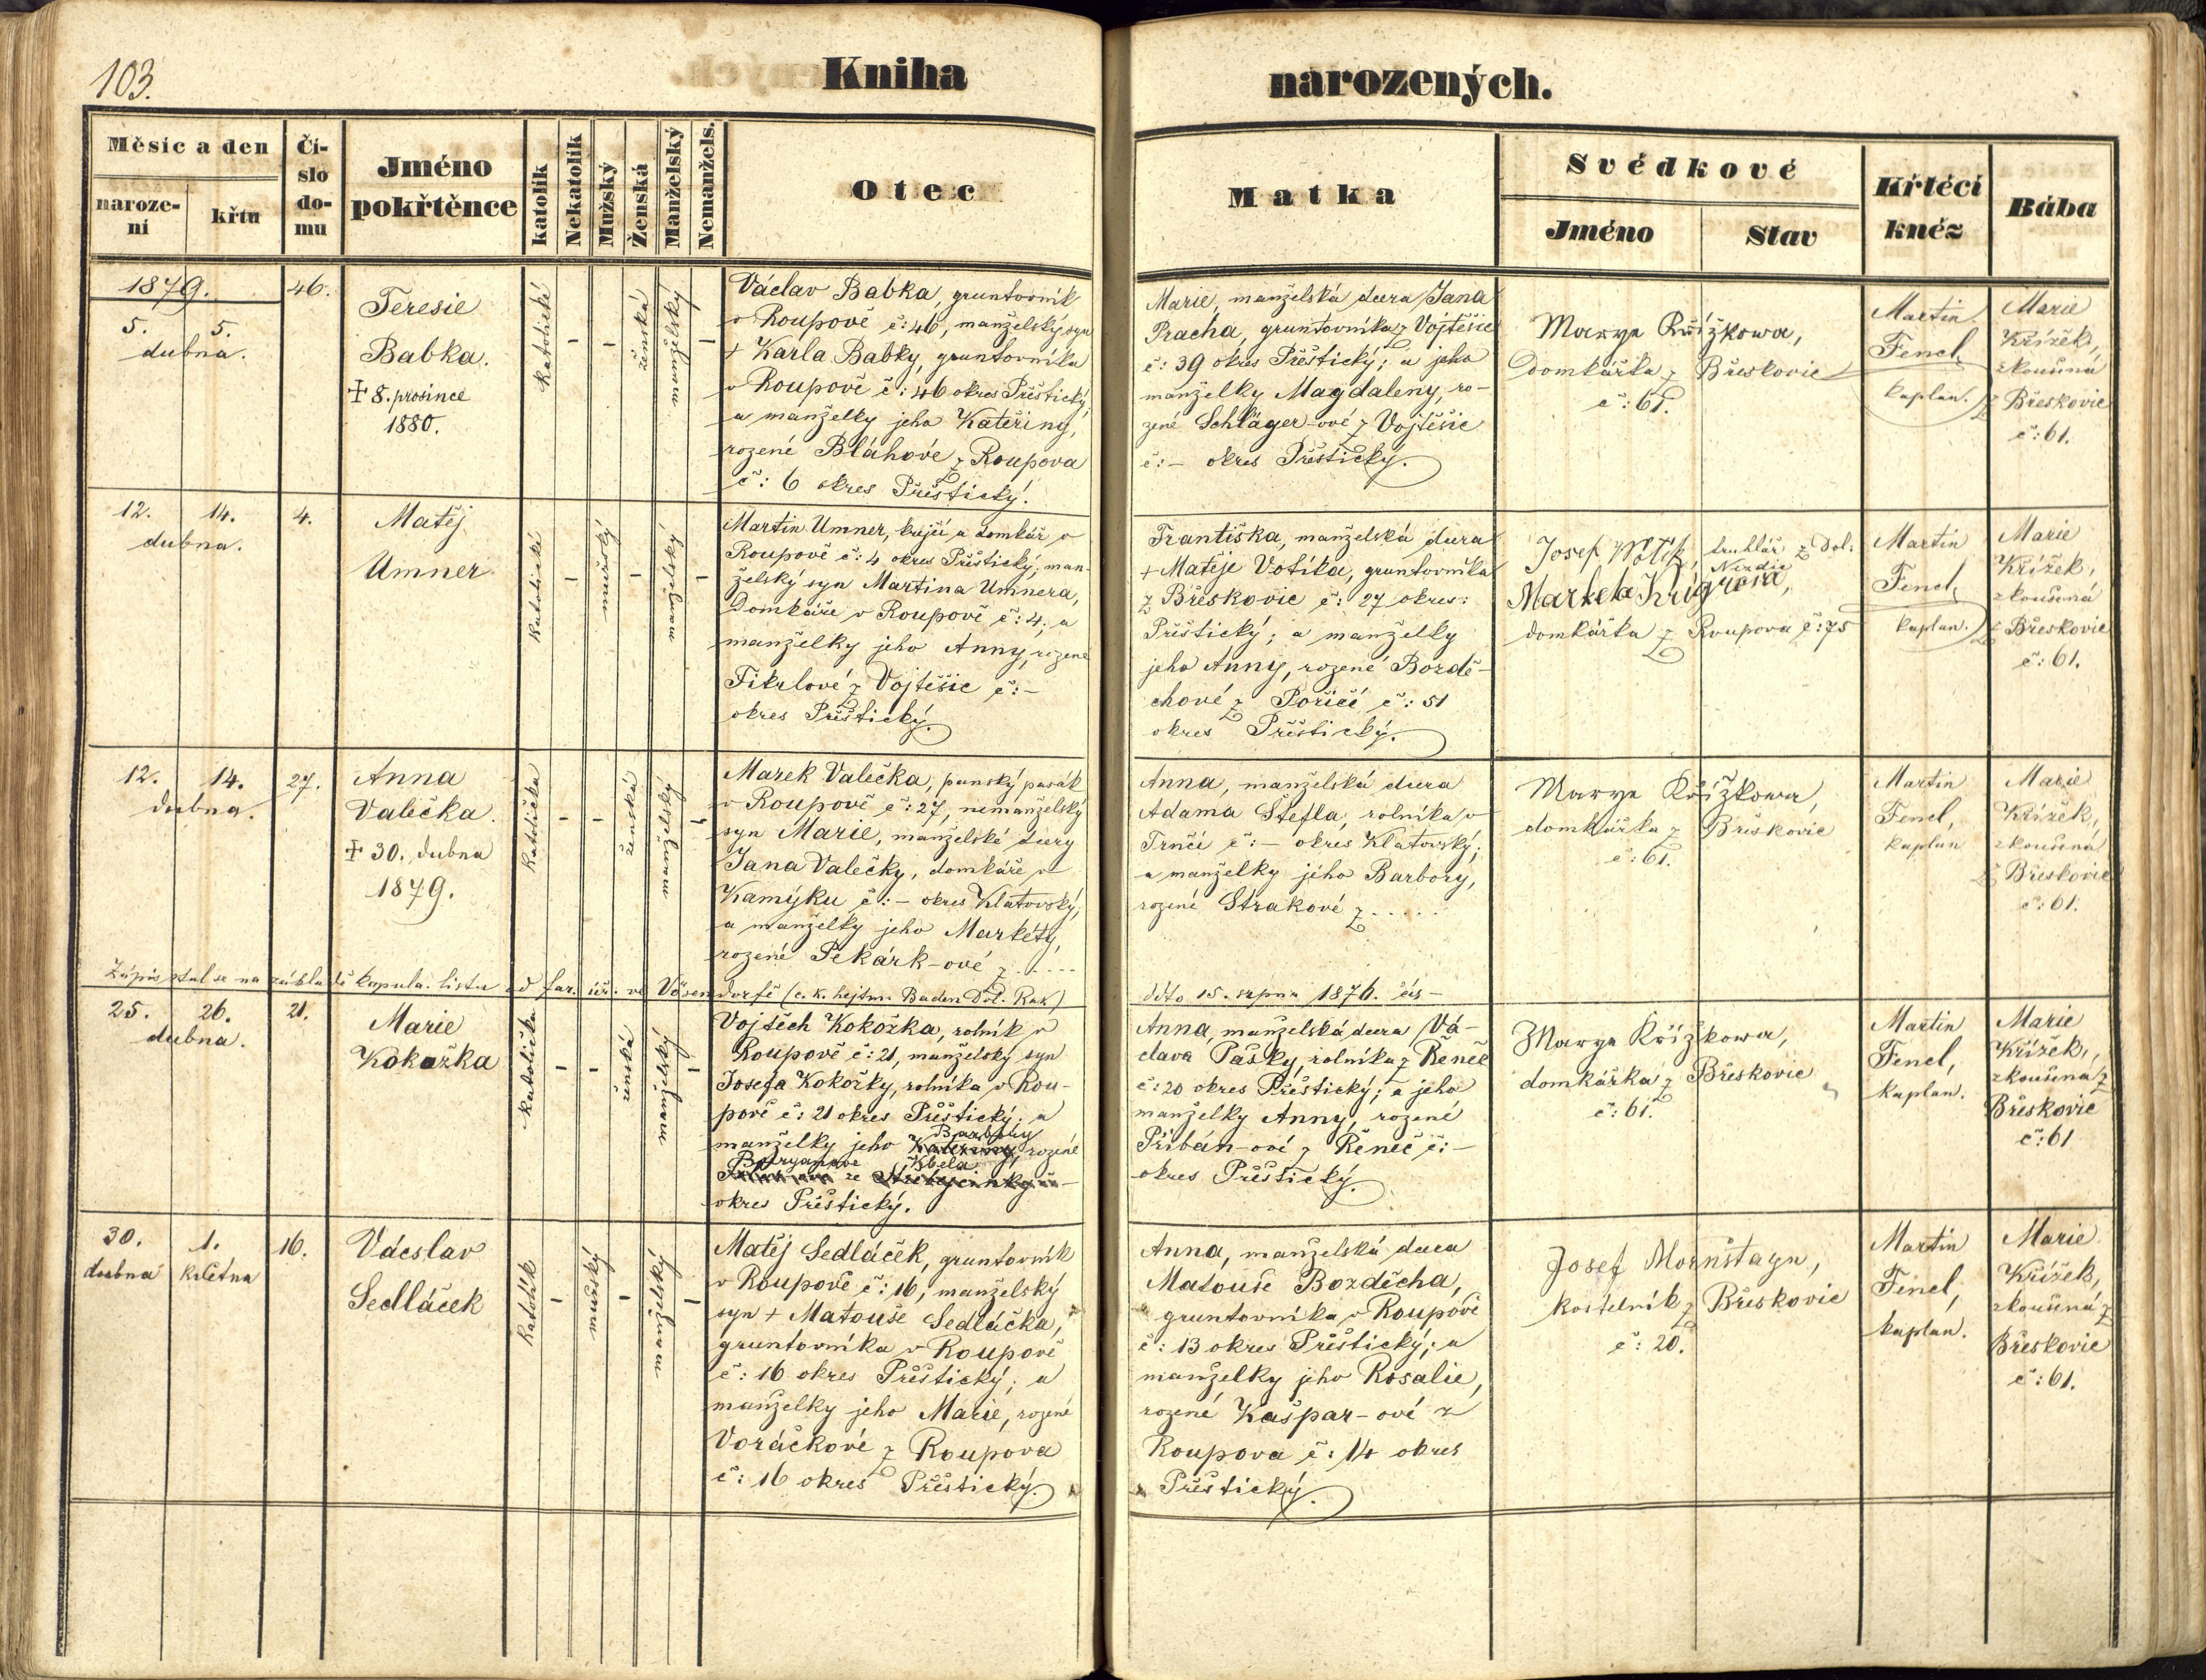 103.
Kniha narozených.
Měsíc a den
naroze-
ní
křtu
Čí-
slo
do-
mu
Jméno
pokřtěnce
katolík
Nekatolík
Mužský
Ženská
Manželský
Nemanžels.
Otec
Matka
Svědkové
Jméno
Stav
Křtěcí
kněz
Bába
1879.
5. 5.
dubna.
46.
Teresie
Babka.
+ 8. prosince
1880.
katolické
-
-
ženská
manželský
-
Václav Babka, gruntovník
v Roupově č: 46, manželský syn
+ Karla Babky, gruntovníka
v Roupově č: 46 okres Přeštický;
a manželky jeho Kateřiny,
rozené Bláhové z Roupova
č: 6 okres Přeštický.
Marie, manželská dcera Jana
Pracha, gruntovníka z Vojtěšic
č: 39 okres Přeštický; a jeho
manželky Magdaleny, ro-
zené Schläger-ové z Vojtěšic
č: - okres Přeštický.
Marye Křížkowa,
Domkářka z Břeskovic
č: 61.
Martin
Fencl,
kaplan.
Marie
Křížek,
zkoušená
z Břeskovic
č: 61.
12. 14.
dubna.
4.
Matěj
Umner
katolické
-
mužský
-
manželský
-
Martin Umner, krejčí a domkář v
Roupově č: 4 okres Přeštický; man-
želský syn Martina Umnera,
Domkáře v Roupově č: 4, a
manželky jeho Anny, rozené
Fikrlové z Vojtěšic č: -
okres Přeštický.
Františka, manželská dcera
+ Matěje Votíka, gruntovníka
z Břeskovic č: 27 okres:
Přeštický; a manželky
jeho Anny, rozené Bozdě-
chové z Poříčí č: 51
okres Přeštický.
Josef Wotík, truhlář z Dol:
Nezdic
Marketa Krügrová,
domkářka z Roupova č: 75
Martin
Fencl,
kaplan.
Marie
Křížek,
zkoušená
z Břeskovic
č: 61.
12. 14.
dubna.
27.
Anna
Valečka.
+ 30. dubna
1879.
katolička
-
-
ženská
manželský
-
Marek Valečka, panský pasák
v Roupově č: 27, nemanželský
syn Marie, manželské dcery
Jana Valečky, domkáře v
Kamýku č: - okres Klatovský;
a manželky jeho Markéty,
rozené Pekárk-ové z .....
Anna, manželská dcera
Adama Štefla, rolníka v
Trnčí č: - okres Klatovský;
a manželky jeho Barbory,
rozené Strakové z .....
Marye Křížkowa,
domkářka z Břeskovic
č: 61.
Martin
Fencl,
kaplan
Marie
Křížek,
zkoušená
z Břeskovic
č: 61.
Zápis stal se na základě kopula. listu od far. úř. ve Vösendorfě (c. k. hejtm. Baden Dol. Rak) ddto 15. srpna 1876. čís -
25. 26.
dubna.
21.
Marie
Kokožka
katolička
-
-
ženská
manželský
-
Vojtěch Kokožka, rolník v
Roupově č: 21, manželský syn
Josefa Kokožky, rolníka v Rou-
pově č: 21 okres Přeštický; a
Barbory
manželky jeho Kateřiny, rozené
ze
okres Přeštický.
Anna, manželská dcera Vá-
clava Pašky, rolníka z Řeneč
č: 20 okres Přeštický; a jeho
manželky Anny, rozené
Přibán-ové z Řeneč č: -
okres Přeštický.
Marye Křížkowa,
domkářka z Břeskovic
č: 61.
Martin
Fencl,
kaplan.
Marie
Křížek,
zkoušena z
Břeskovic
č: 61
30. 1.
dubna května
16.
Václav
Sedláček
katolík
-
mužský
-
manželský
-
Matěj Sedláček, gruntovník
v Roupově č: 16, manželský
syn + Matouše Sedláčka,
gruntovníka v Roupově
č: 16 okres Přeštický; a
manželky jeho Marie, rozené
Voráčkové z Roupova
č: 16 okres Přeštický.
Anna, manželská dcea
Matouše Bozděcha,
gruntovníka v Roupově
č: 13 okres Přeštický; a
manželky jeho Rosalie,
rozené Kašpar-ové z
Roupova č: 14 okres
Přeštický.
Josef Mornštayn,
kostelník z Břeskovic
č: 20.
Martin
Fencl,
kaplan.
Marie
Křížek,
zkoušená z
Břeskovic
č: 61.